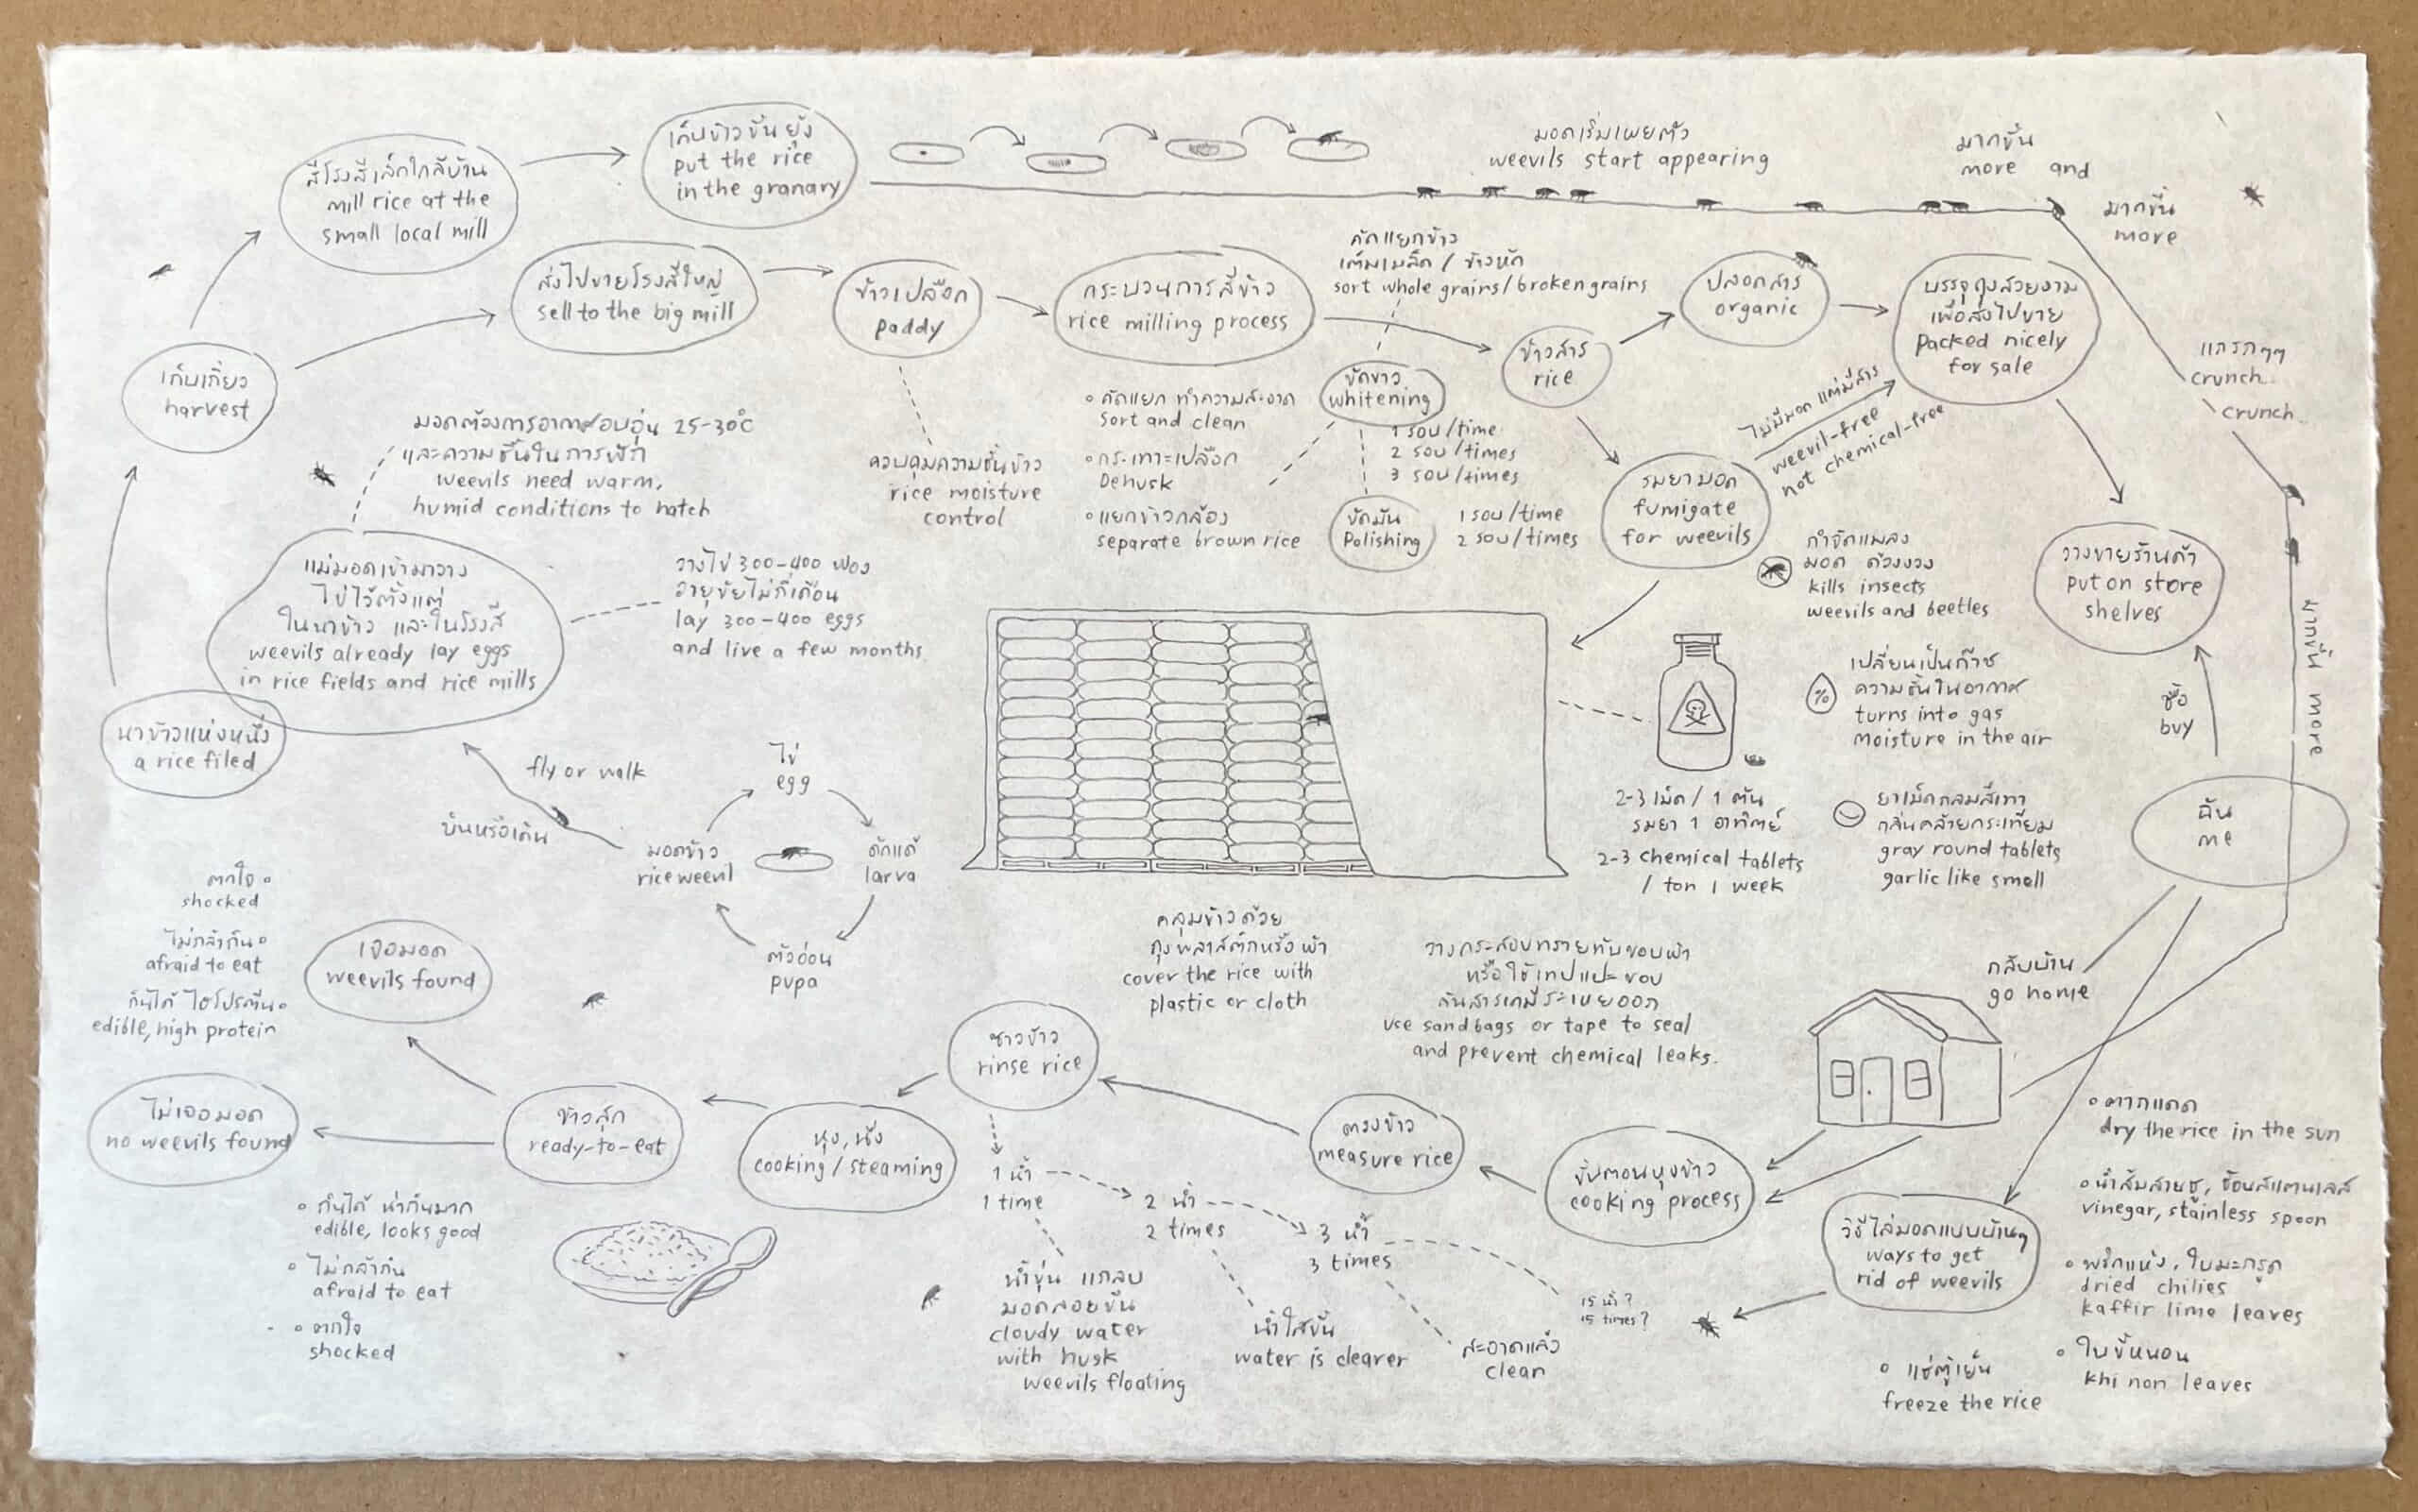 สีโรงสีเล็กใกล้บ้าน
mill rice at the
small local mill
เก็บข้าวขึ้นยุ้ง
put the rice
in the granary
มอดเริ่มเผยตัว
weevils start appearing
มากขึ้น
more and
มากขึ้น
more
ส่งไปขายโรงสีใหญ่
sell to the big mill
ข้าวเปลือก
paddy
กระบวนการสีข้าว
rice milling process
คัดแยกข้าว
เต็มเมล็ด / ข้าวหัก
sort whole grains/broken grains
ข้าวสาร
rice
ปลอดสาร
organic
บรรจุถุงสวยงาม
เพื่อส่งไปขาย
packed nicely
for sale
แกรกๆๆ
crunch
crunch
เก็บเกี่ยว
harvest
มอดต้องการอากาศอบอุ่น 25-30°C
และความชื้นในการฟัก
weevils need warm,
humid conditions to hatch
ควบคุมความชื้นข้าว
rice moisture
control
คัดแยก ทำความสะอาด
Sort and clean
กระเทาะเปลือก
Dehusk
แยกข้าวกล้อง
separate brown rice
ขัดขาว
whitening
1 รอบ/time
2 รอบ/times
3 รอบ/times
ขัดมัน
Polishing
1 รอบ/time
2 รอบ/times
รมยามอด
fumigate
for weevils
ไม่มีมอด แต่มีสาร
weevil-free
not chemical-free
กำจัดแมลง
มอด ด้วงงวง
kills insects
weevils and beetles
วางขายร้านค้า
put on store
shelves
แม่มอดเข้ามาวาง
ไข่ไว้ตั้งแต่
ในนาข้าว และในโรงสี
weevils already lay eggs
in rice fields and rice mills
วางไข่ 300-400 ฟอง
อายุขัยไม่กี่เดือน
lay 300-400 eggs
and live a few months
นาข้าวแห่งหนึ่ง
a rice filed
fly or walk
บินหรือเดิน
ไข่
egg
ดักแด้
larva
ตัวอ่อน
pupa
มอดข้าว
rice weevil
%
เปลี่ยนเป็นก๊าซ
ความชื้นในอากาศ
turns into gas
moisture in the air
2-3 เม็ด / 1 ตัน
รมยา 1 อาทิตย์
2-3 chemical tablets
/ ton 1 week
ยาเม็ดกลมสีเทา
กลิ่นคล้ายกระเทียม
gray round tablets
garlic like smell
ซื้อ
buy
มากขึ้น more
ฉัน
me
คลุมข้าวด้วย
ถุงพลาสติกหรือผ้า
cover the rice with
plastic or cloth
วางกระสอบทรายทับขอบผ้า
หรือใช้เทปแปะขอบ
กันสารเคมีระเหยออก
use sandbags or tape to seal
and prevent chemical leaks.
กลับบ้าน
go home
ตกใจ
shocked
ไม่กล้ากิน
afraid to eat
กินได้ ไฮโปรตีน
edible, high protein
เจอมอด
weevils found
ไม่เจอมอด
no weevils found
ข้าวสุก
ready-to-eat
หุง, นึ่ง
cooking / steaming
ซาวข้าว
rinse rice
ตวงข้าว
measure rice
ขั้นตอนหุงข้าว
cooking process
วิธีไล่มอดแบบบ้านๆ
ways to get
rid of weevils
ตากแดด
dry the rice in the sun
น้ำส้มสายชู, ช้อนสแตนเลส
vinegar, stainless spoon
พริกแห้ง, ใบมะกรูด
dried chilies
kaffir lime leaves
ใบขี้หนอน
khi non leaves
แช่ตู้เย็น
freeze the rice
กินได้ น่ากินมาก
edible, looks good
ไม่กล้ากิน
afraid to eat
ตกใจ
shocked
1 น้ำ
1 time
2 น้ำ
2 times
3 น้ำ
3 times
15 น้ำ?
15 times?
น้ำขุ่น แกลบ
มอดลอยขึ้น
cloudy water
with husk
weevils floating
น้ำใสขึ้น
water is clearer
สะอาดแล้ว
clean